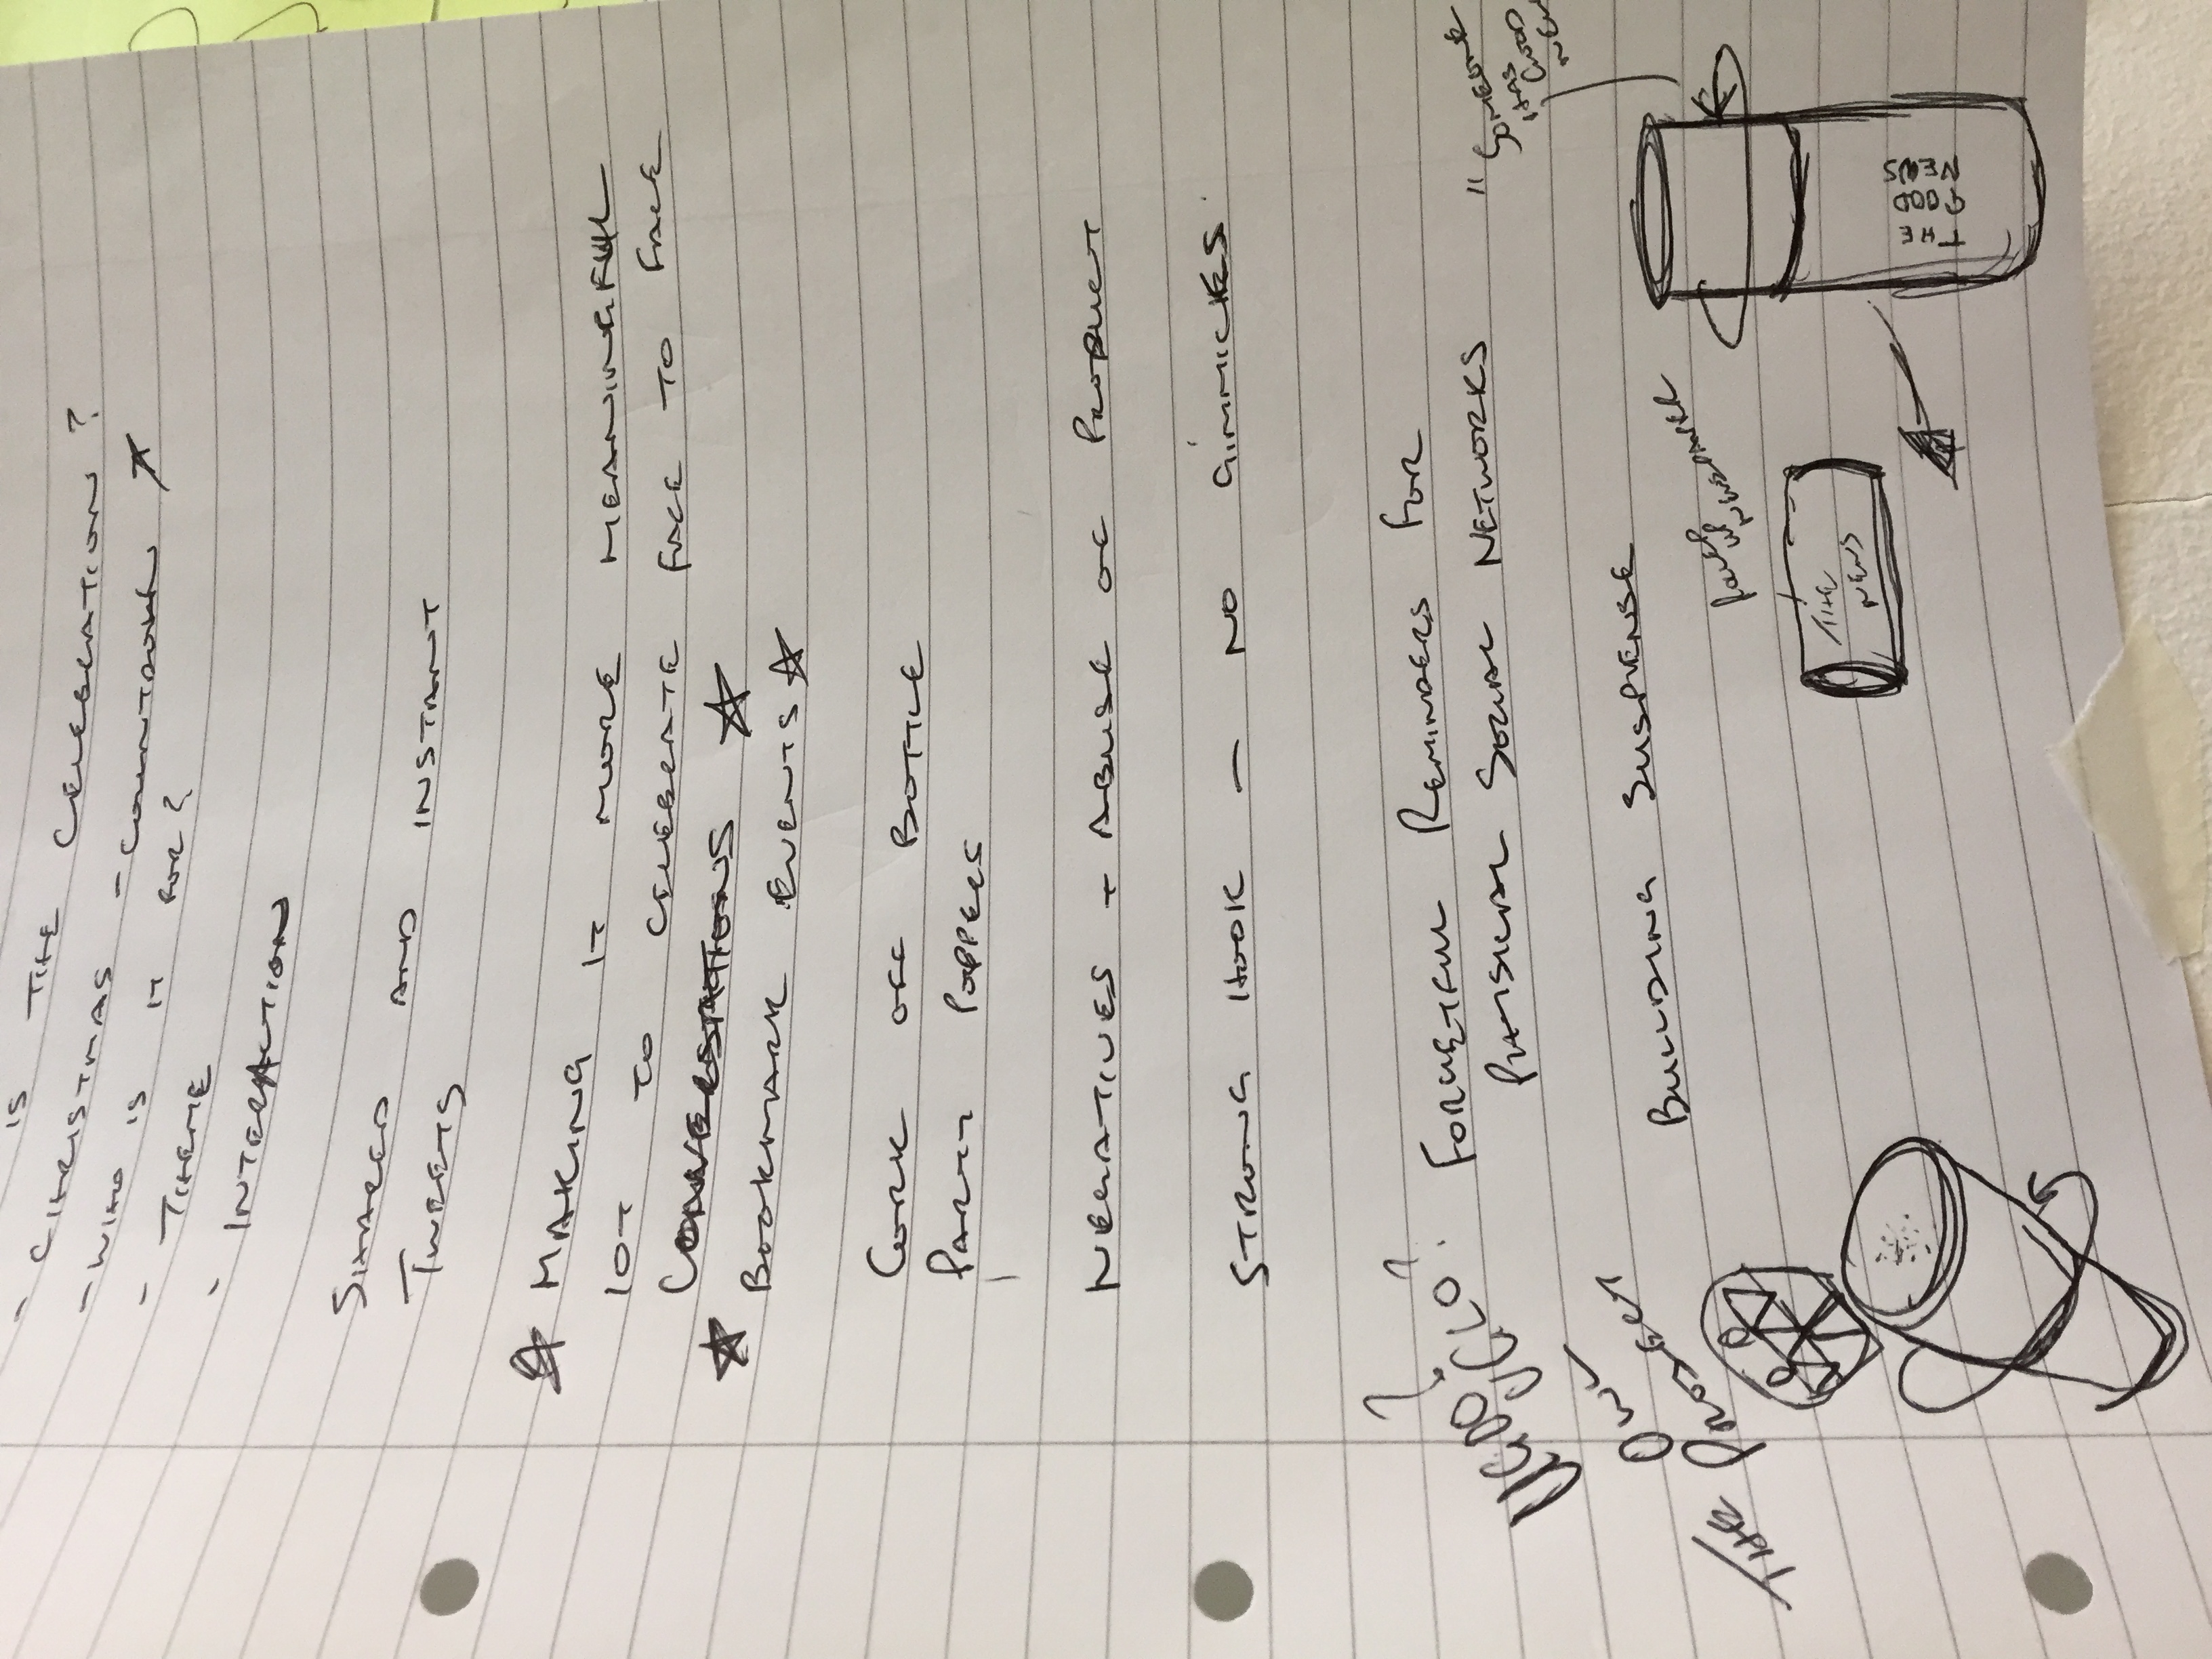 IS THE CELEBRATION?
- CHRISTMAS - COUNTDOWN
- WHO IS IT FOR?
- THEME
- INTERACTION
SHARED AND INSTANT
TWEETS
MAKING IT MORE MEANINGFUL
IOT TO CELEBRATE FACE TO FACE
CONVERSTATIONS
BOOKMARK EVENTS
CORK OFF BOTTLE
PARTY POPPERS
NEGATIVES - ABUSE OF PRODUCT
STRONG HOOK - NO GIMMICKS
UGDO?
UGLO?
FORGETFUL REMINDERS FOR
PHYSICAL SOCIAL NETWORKS
"SOMEONE
HAS
GOOD
THE OWL
PROJECT
BUILDING SUSPENSE
ROLLED
UP
NEWSPAPER
THE
NEWS
THE
GOOD
NEWS